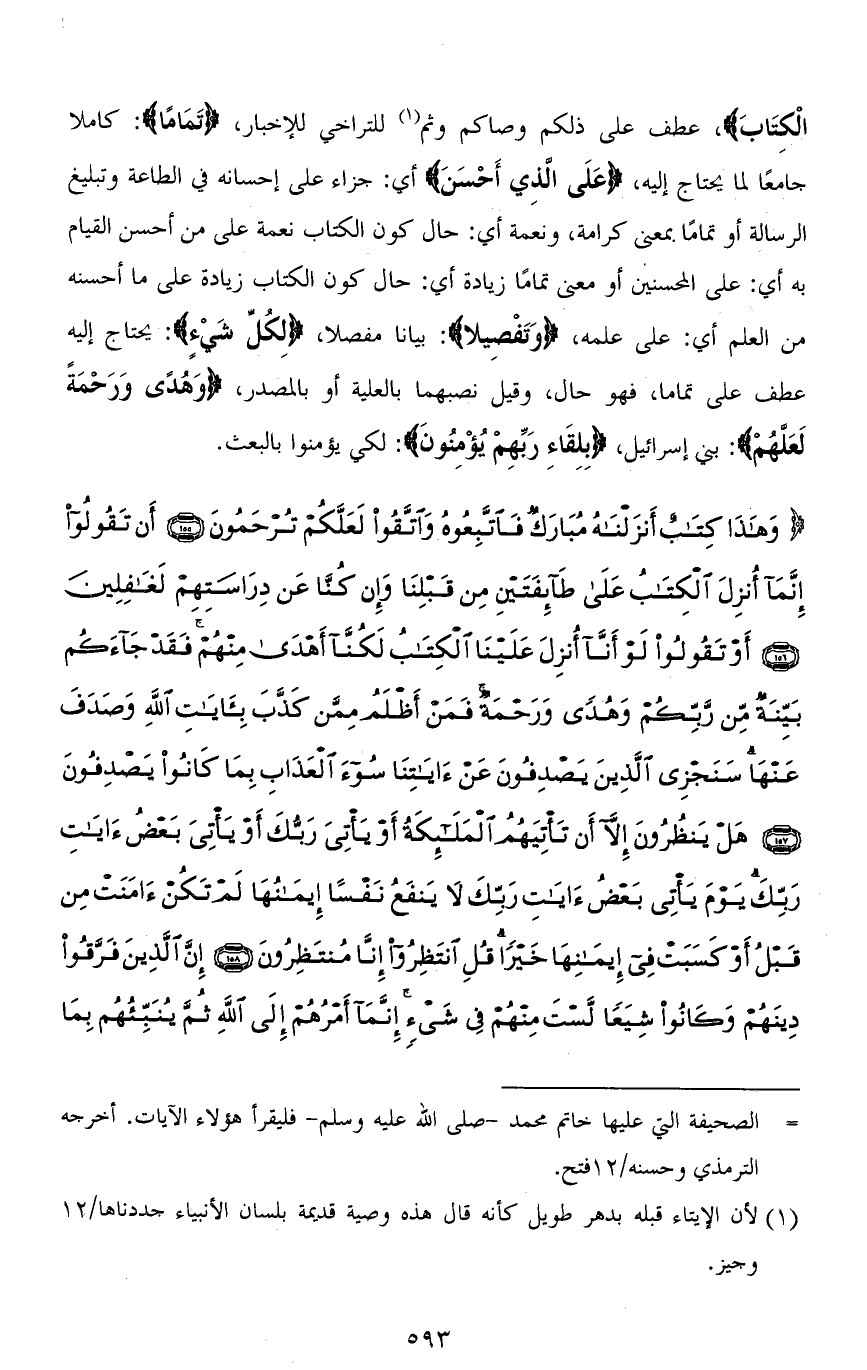 الْكِتَابَ﴾، عطف على ذلكم وصاكم وثم(١) للتراخي للإخبار، ﴿تَمَامًا﴾: كاملا
جامعًا لما يحتاج إليه، ﴿عَلَى الَّذِي أَحْسَنَ﴾ أي: جزاء على إحسانه في الطاعة وتبليغ
الرسالة أو تمامًا بمعنى كرامة، ونعمة أي: حال كون الكتاب نعمة على من أحسن القيام
به أي: على المحسنين أو معنى تمامًا زيادة أي: حال كون الكتاب زيادة على ما أحسنه
من العلم أي: على علمه، ﴿وَتَفْصِيلا﴾: بيانا مفصلا، ﴿لِكُلِّ شَيْءٍ﴾: يحتاج إليه
عطف على تماما، فهو حال، وقيل نصبهما بالعلية أو بالمصدر، ﴿وَهُدًى وَرَحْمَةً
لَعَلَّهُمْ﴾: بني إسرائيل، ﴿بِلِقَاءِ رَبِّهِمْ يُؤْمِنُونَ﴾: لكي يؤمنوا بالبعث.
﴿ وَهَٰذَا كِتَٰبٌ أَنزَلْنَٰهُ مُبَارَكٌ فَٱتَّبِعُوهُ وَٱتَّقُوا۟ لَعَلَّكُمْ تُرْحَمُونَ ١٥٥ أَن تَقُولُوٓا۟
إِنَّمَآ أُنزِلَ ٱلْكِتَٰبُ عَلَىٰ طَآئِفَتَيْنِ مِن قَبْلِنَا وَإِن كُنَّا عَن دِرَاسَتِهِمْ لَغَٰفِلِينَ
١٥٦ أَوْ تَقُولُوا۟ لَوْ أَنَّآ أُنزِلَ عَلَيْنَا ٱلْكِتَٰبُ لَكُنَّآ أَهْدَىٰ مِنْهُمْ ۚ فَقَدْ جَآءَكُم
بَيِّنَةٌ مِّن رَّبِّكُمْ وَهُدًى وَرَحْمَةٌ ۚ فَمَنْ أَظْلَمُ مِمَّن كَذَّبَ بِـَٔايَٰتِ ٱللَّهِ وَصَدَفَ
عَنْهَا ۗ سَنَجْزِى ٱلَّذِينَ يَصْدِفُونَ عَنْ ءَايَٰتِنَا سُوٓءَ ٱلْعَذَابِ بِمَا كَانُوا۟ يَصْدِفُونَ
١٥٧ هَلْ يَنظُرُونَ إِلَّآ أَن تَأْتِيَهُمُ ٱلْمَلَٰٓئِكَةُ أَوْ يَأْتِىَ رَبُّكَ أَوْ يَأْتِىَ بَعْضُ ءَايَٰتِ
رَبِّكَ ۗ يَوْمَ يَأْتِى بَعْضُ ءَايَٰتِ رَبِّكَ لَا يَنفَعُ نَفْسًا إِيمَٰنُهَا لَمْ تَكُنْ ءَامَنَتْ مِن
قَبْلُ أَوْ كَسَبَتْ فِىٓ إِيمَٰنِهَا خَيْرًا ۗ قُلِ ٱنتَظِرُوٓا۟ إِنَّا مُنتَظِرُونَ ١٥٨ إِنَّ ٱلَّذِينَ فَرَّقُوا۟
دِينَهُمْ وَكَانُوا۟ شِيَعًا لَّسْتَ مِنْهُمْ فِى شَىْءٍ ۚ إِنَّمَآ أَمْرُهُمْ إِلَى ٱللَّهِ ثُمَّ يُنَبِّئُهُم بِمَا
= الصحيفة التي عليها خاتم محمد -صلى الله عليه وسلم- فليقرأ هؤلاء الآيات. أخرجه
الترمذي وحسنه/١٢فتح.
(١) لأن الإيتاء قبله بدهر طويل كأنه قال هذه وصية قديمة بلسان الأنبياء جددناها/١٢
وجيز.
٥٩٣